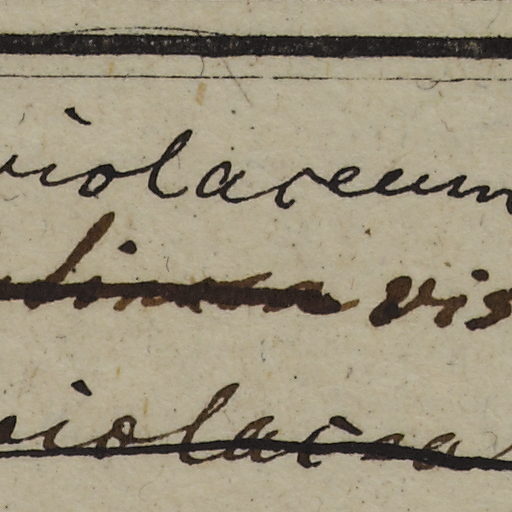 violaceum
vis
violacea